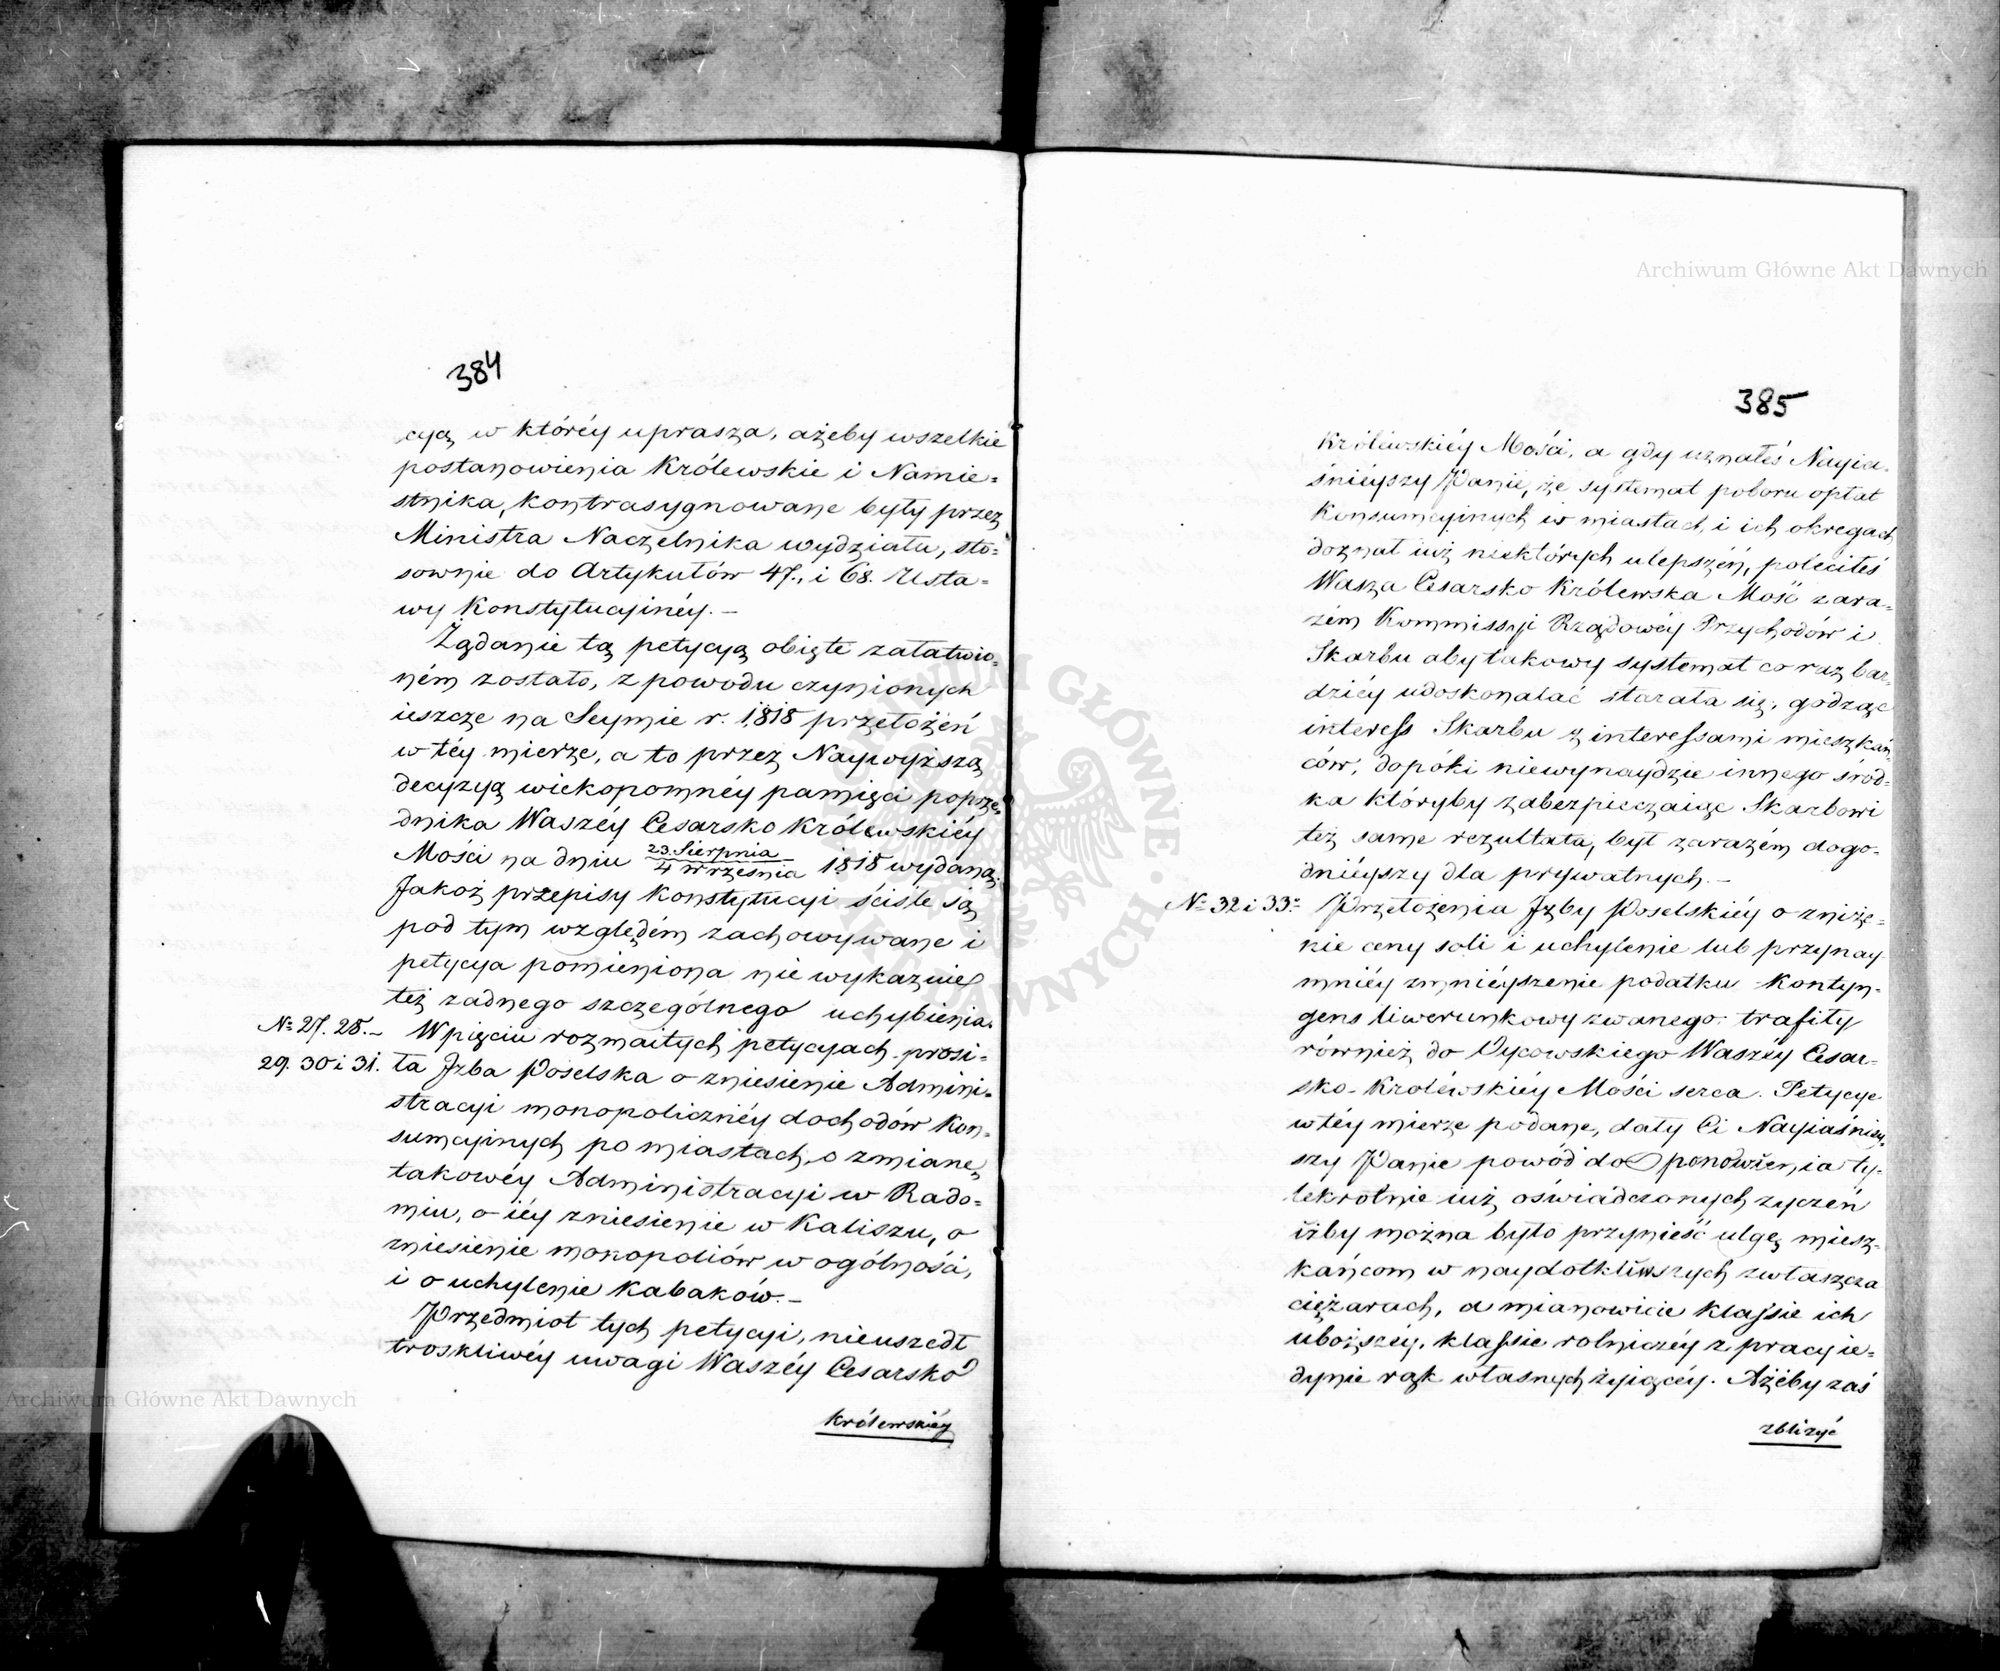 384
cyą w któréy uprasza, ażeby wszelkie
postanowienia Królewskie i Namie=
stnika, kontrasygnowane były przez
Ministra Naczelnika wydziału, sto=
sownie do Artykułów 47., i 68. Usta=
wy Konstytucyinéy. –
Żądanie tą petycyą obięte załatwio=
ném zostało, z powodu czynionych
ieszcze na Seymie r. 1818 przełożeń
w téy mierze, a to przez Naywyższą
decyzyą wiekopomnéy pamięci poprze=
dnika Waszéy Cesarsko Królewskiéy
Mości na dniu 23. Sierpnia / 4 Września 1818 wydaną.
Jakoż przepisy Konstytucyi ściśle są
pod tym względém zachowywane i
petycya pomieniona nie wykazuie
też żadnego szczególnego uchybienia.
№ 27. 28. – W pięciu rozmaitych petycyach prosi=
29. 30 i 31. ła Izba Poselska o zniesienie Admini=
stracyi monopoliczney dochodów kon=
sumcyinych po miastach, o zmianę
takowéy Administracyi w Rado=
miu, o iéy zniesienie w Kaliszu, o
zniesienie monopoliów w ogólności,
i o uchylenie kabaków. –
Przedmiot tych petycyi, nieuszedł
troskliwéy uwagi Waszéy Cesarsko
Królewskiéy
385
Królewskiéy Mości, a gdy uznałeś Nayia=
śniéyszy Panie, że systemat poboru opłat
Konsumcyinych w miastach i ich okręgach
doznał iuż niektórych ulepszéń, poleciłeś
Wasza Cesarsko Królewska Mość zara=
zém Kommissyi Rządowéy Przychodów i
Skarbu aby takowy systemat co raz bar=
dziéy udoskonalać starała się, godząc
interess Skarbu z interessami mieszkań=
ców, dopóki niewynaydzie innego środ=
ka któryby zabezpieczaiąc Skarbowi
też same rezultata, był zarazém dogo=
dniéyszy dla prywatnych. –
№ 32 i 33. Przełożenia Izby Poselskiéy o zniże=
nie ceny soli i uchylenie lub przynay=
mniéy zmniéyszenie podatku Kontyn=
gens liwerunkowy zwanego trafiły
również do Oycowskiego Waszéy Cesar=
sko-Królewskiéy Mości serca. Petycye
w téy mierze podane, dały Ci Nayiaśniéy=
szy Panie powód do ponowienia ty=
lekrotnie iuż oświadczonych życzeń
iżby można było przynieść ulgę miesz=
kańcom w naydotkliwszych zwłaszcza
ciężarach, a mianowicie klassie ich
uboższéy, klassie rolniczéy z pracy ie=
dynie rąk własnych żyiącéy. Ażeby zaś
zbliżyć
Archiwum Główne Akt Dawnych
Archiwum Główne Akt Dawnych
ARCHIWUM GŁÓWNE AKT DAWNYCH